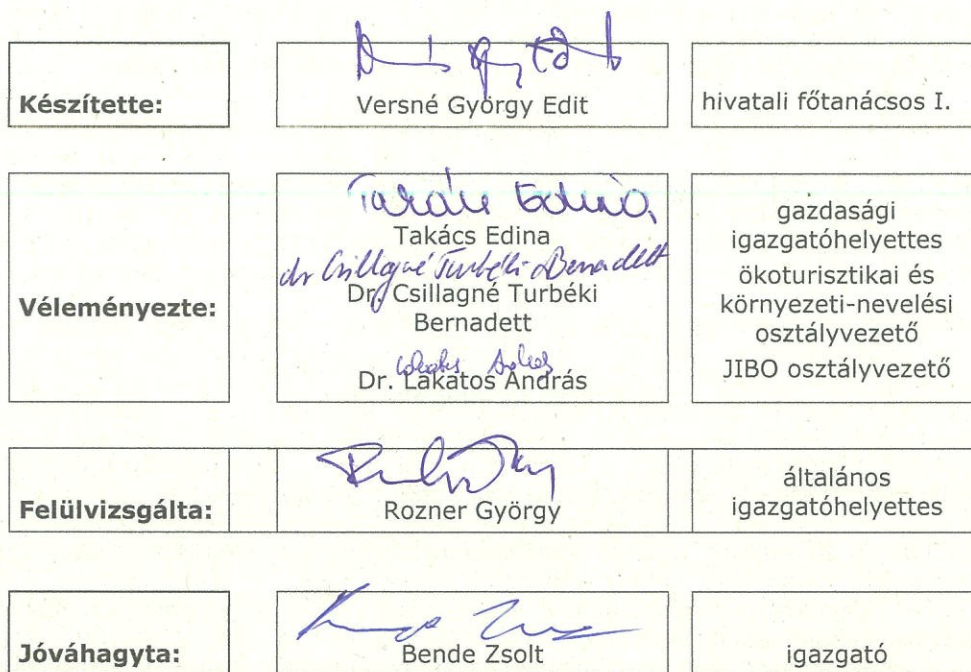 Készítette:
Versné György Edit
hivatali főtanácsos I.
Véleményezte:
Takács Edina
Takács Edina
dr Csillagné Turbéki Bernadett
Dr. Csillagné Turbéki
Bernadett
Lakatos András
Dr. Lakatos András
gazdasági
igazgatóhelyettes
ökoturisztikai és
környezeti-nevelési
osztályvezető
JIBO osztályvezető
Felülvizsgálta:
Rozner György
általános
igazgatóhelyettes
Jóváhagyta:
Bende Zsolt
igazgató